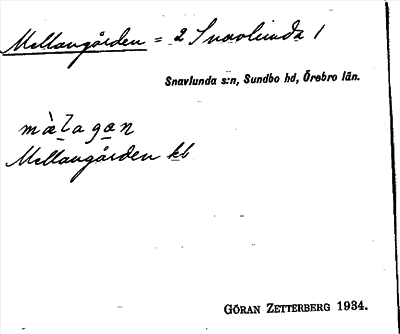 Mellangården = 2 Snavlunda 1
Snavlunda s:n, Sundbo hd, Örebro län.
mæ̀lagan
Mellangården kb
GÖRAN ZETTERBERG 1934.